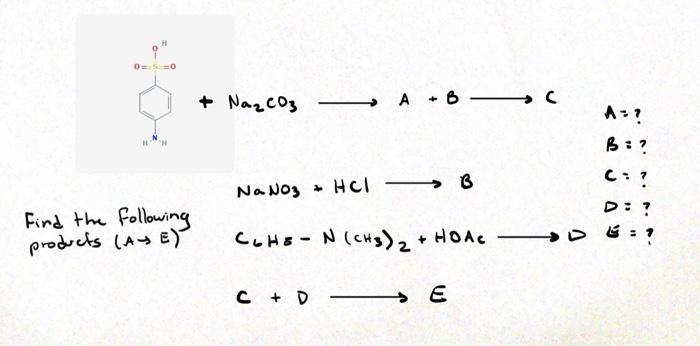 H
O
O=S=O
N
H H
+ Na2CO3 → A + B → C
A = ?
B = ?
C = ?
D = ?
E = ?
NaNO3 + HCl → B
Find the following
products (A → E)
C6H5 - N (CH3)2 + HOAc → D
C + D → E